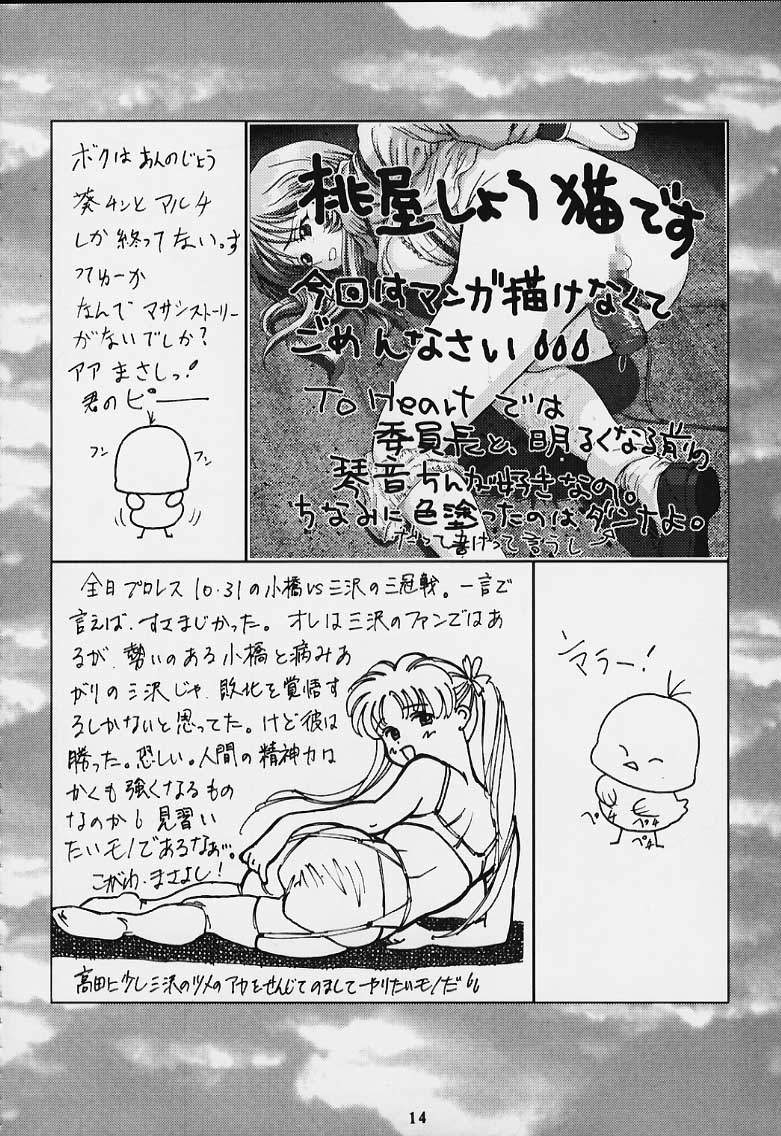 ボクはあんのじょう
葵チンとマルチ
しか終ってない。す
ってゆーか
なんでマサシストーリー
がないでしか?
アア まさしっ!
君のピー――
フン
フン
桃屋しょう猫です
今回はマンガ描けなくて
ごめんなさい
To Heartでは
委員長と、明るくなる前の
琴音ちんが好きなの。
ちなみに色塗ったのはダンナよ。
だって書けって言うし
全日プロレス10・31の小橋vs三沢の三冠戦。一言で
言えば、すさまじかった。オレは三沢のファンではあ
るが、勢いのある小橋と病みあ
がりの三沢じゃ、敗北を覚悟す
るしかないと思ってた。けど彼は
勝った。恐しい。人間の精神力は
かくも強くなるもの
なのか!見習い
たいモノであるなぁ…。
こがわ・まさよし!
高田に少し三沢のツメのアカをせんじてのましてやりたいモノだ!!
マラー!
ペチ
ペチ
ペチ
14